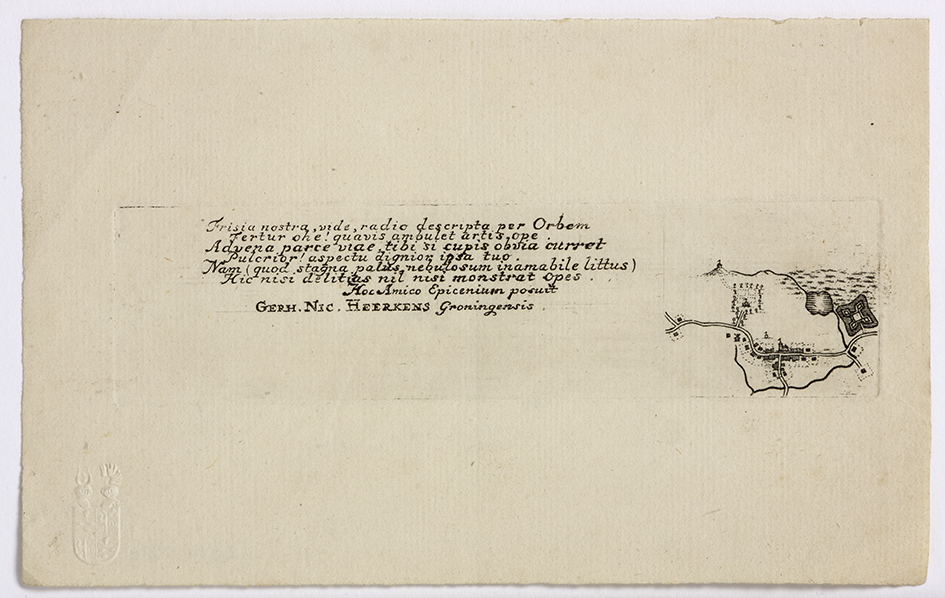 Frisia nostra, vide, radio descripta per Orbem
Fertur ohe! quavis ambulet artis ope
Advena parce viae, tibi si cupis obvia curret
Pulcrior! aspectu dignior ipsa tuo.
Nam (quod stagna palus, nebulosum inamabile littus)
Hic nisi delitias nil nisi monstrat opes.
Hoc Amico Epicenium posuit
GERH. NIC. HEERKENS Groningensis.